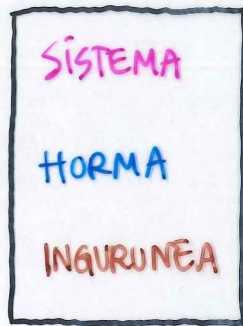 SISTEMA
HORMA
INGURUNEA